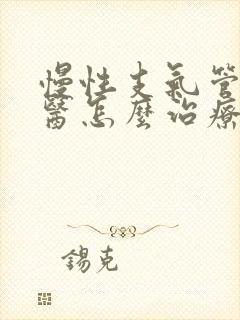 慢性支氣管
醫怎麼治療
錫克